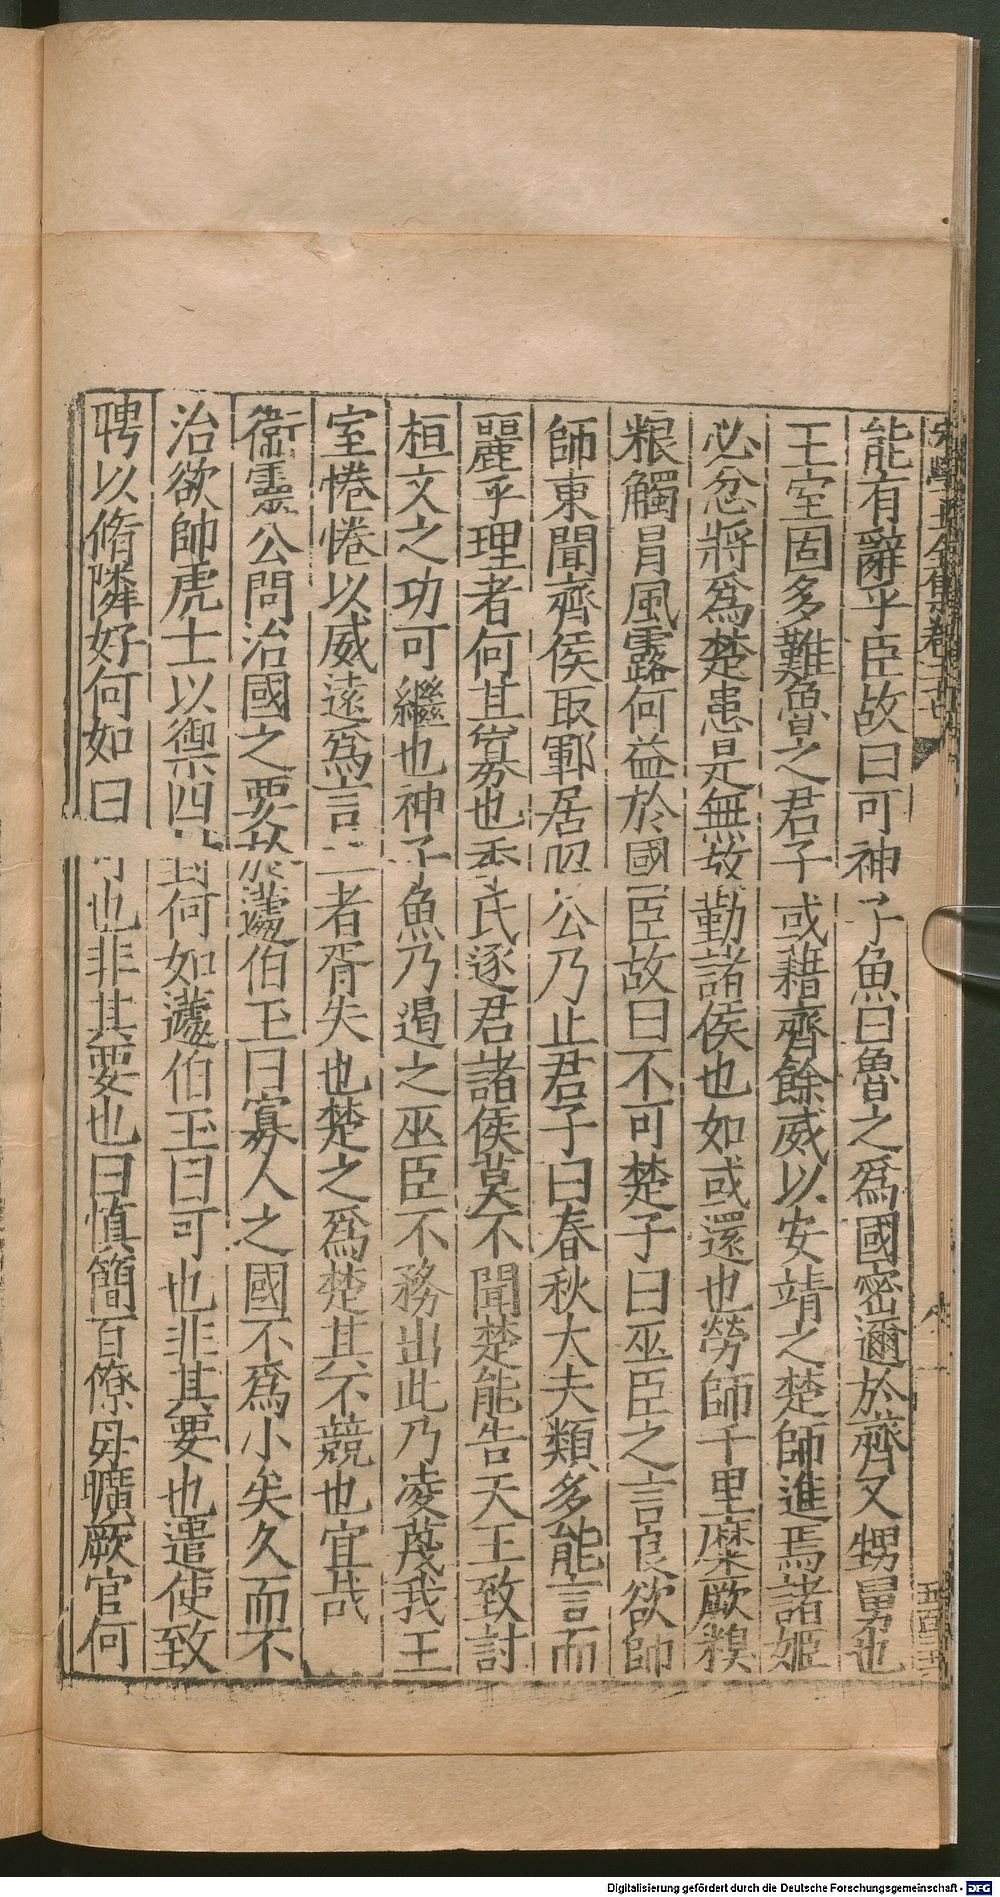 能有辭乎臣故曰可神子魚曰魯之爲國密邇於齊又甥舅也
王室固多難魯之君子或藉齊餘威以安靖之楚師進焉諸姬
必忿將爲楚患是無故勤諸侯也如或還也勞師千里糜厥糗
粮觸冒風露何益於國臣故曰不可楚子曰巫臣之言良欲師
師東聞齊侯取鄆居昭公乃止君子曰春秋大夫類多能言而
麗乎理者何其寡也季氏逐君諸侯莫不聞楚能告天王致討
桓文之功可繼也神子魚乃遏之巫臣不務出此乃凌蔑我王
室惓惓以威遠爲言二者胥失也楚之爲楚其不競也宜哉
衞靈公問治國之要於蘧伯玉曰寡人之國不爲小矣久而不
治欲帥虎士以禦四封何如蘧伯玉曰可也非其要也遣使致
聘以脩隣好何如曰可也非其要也曰慎簡百僚毋曠厥官何
Digitalisierung gefördert durch die Deutsche Forschungsgemeinschaft - DFG